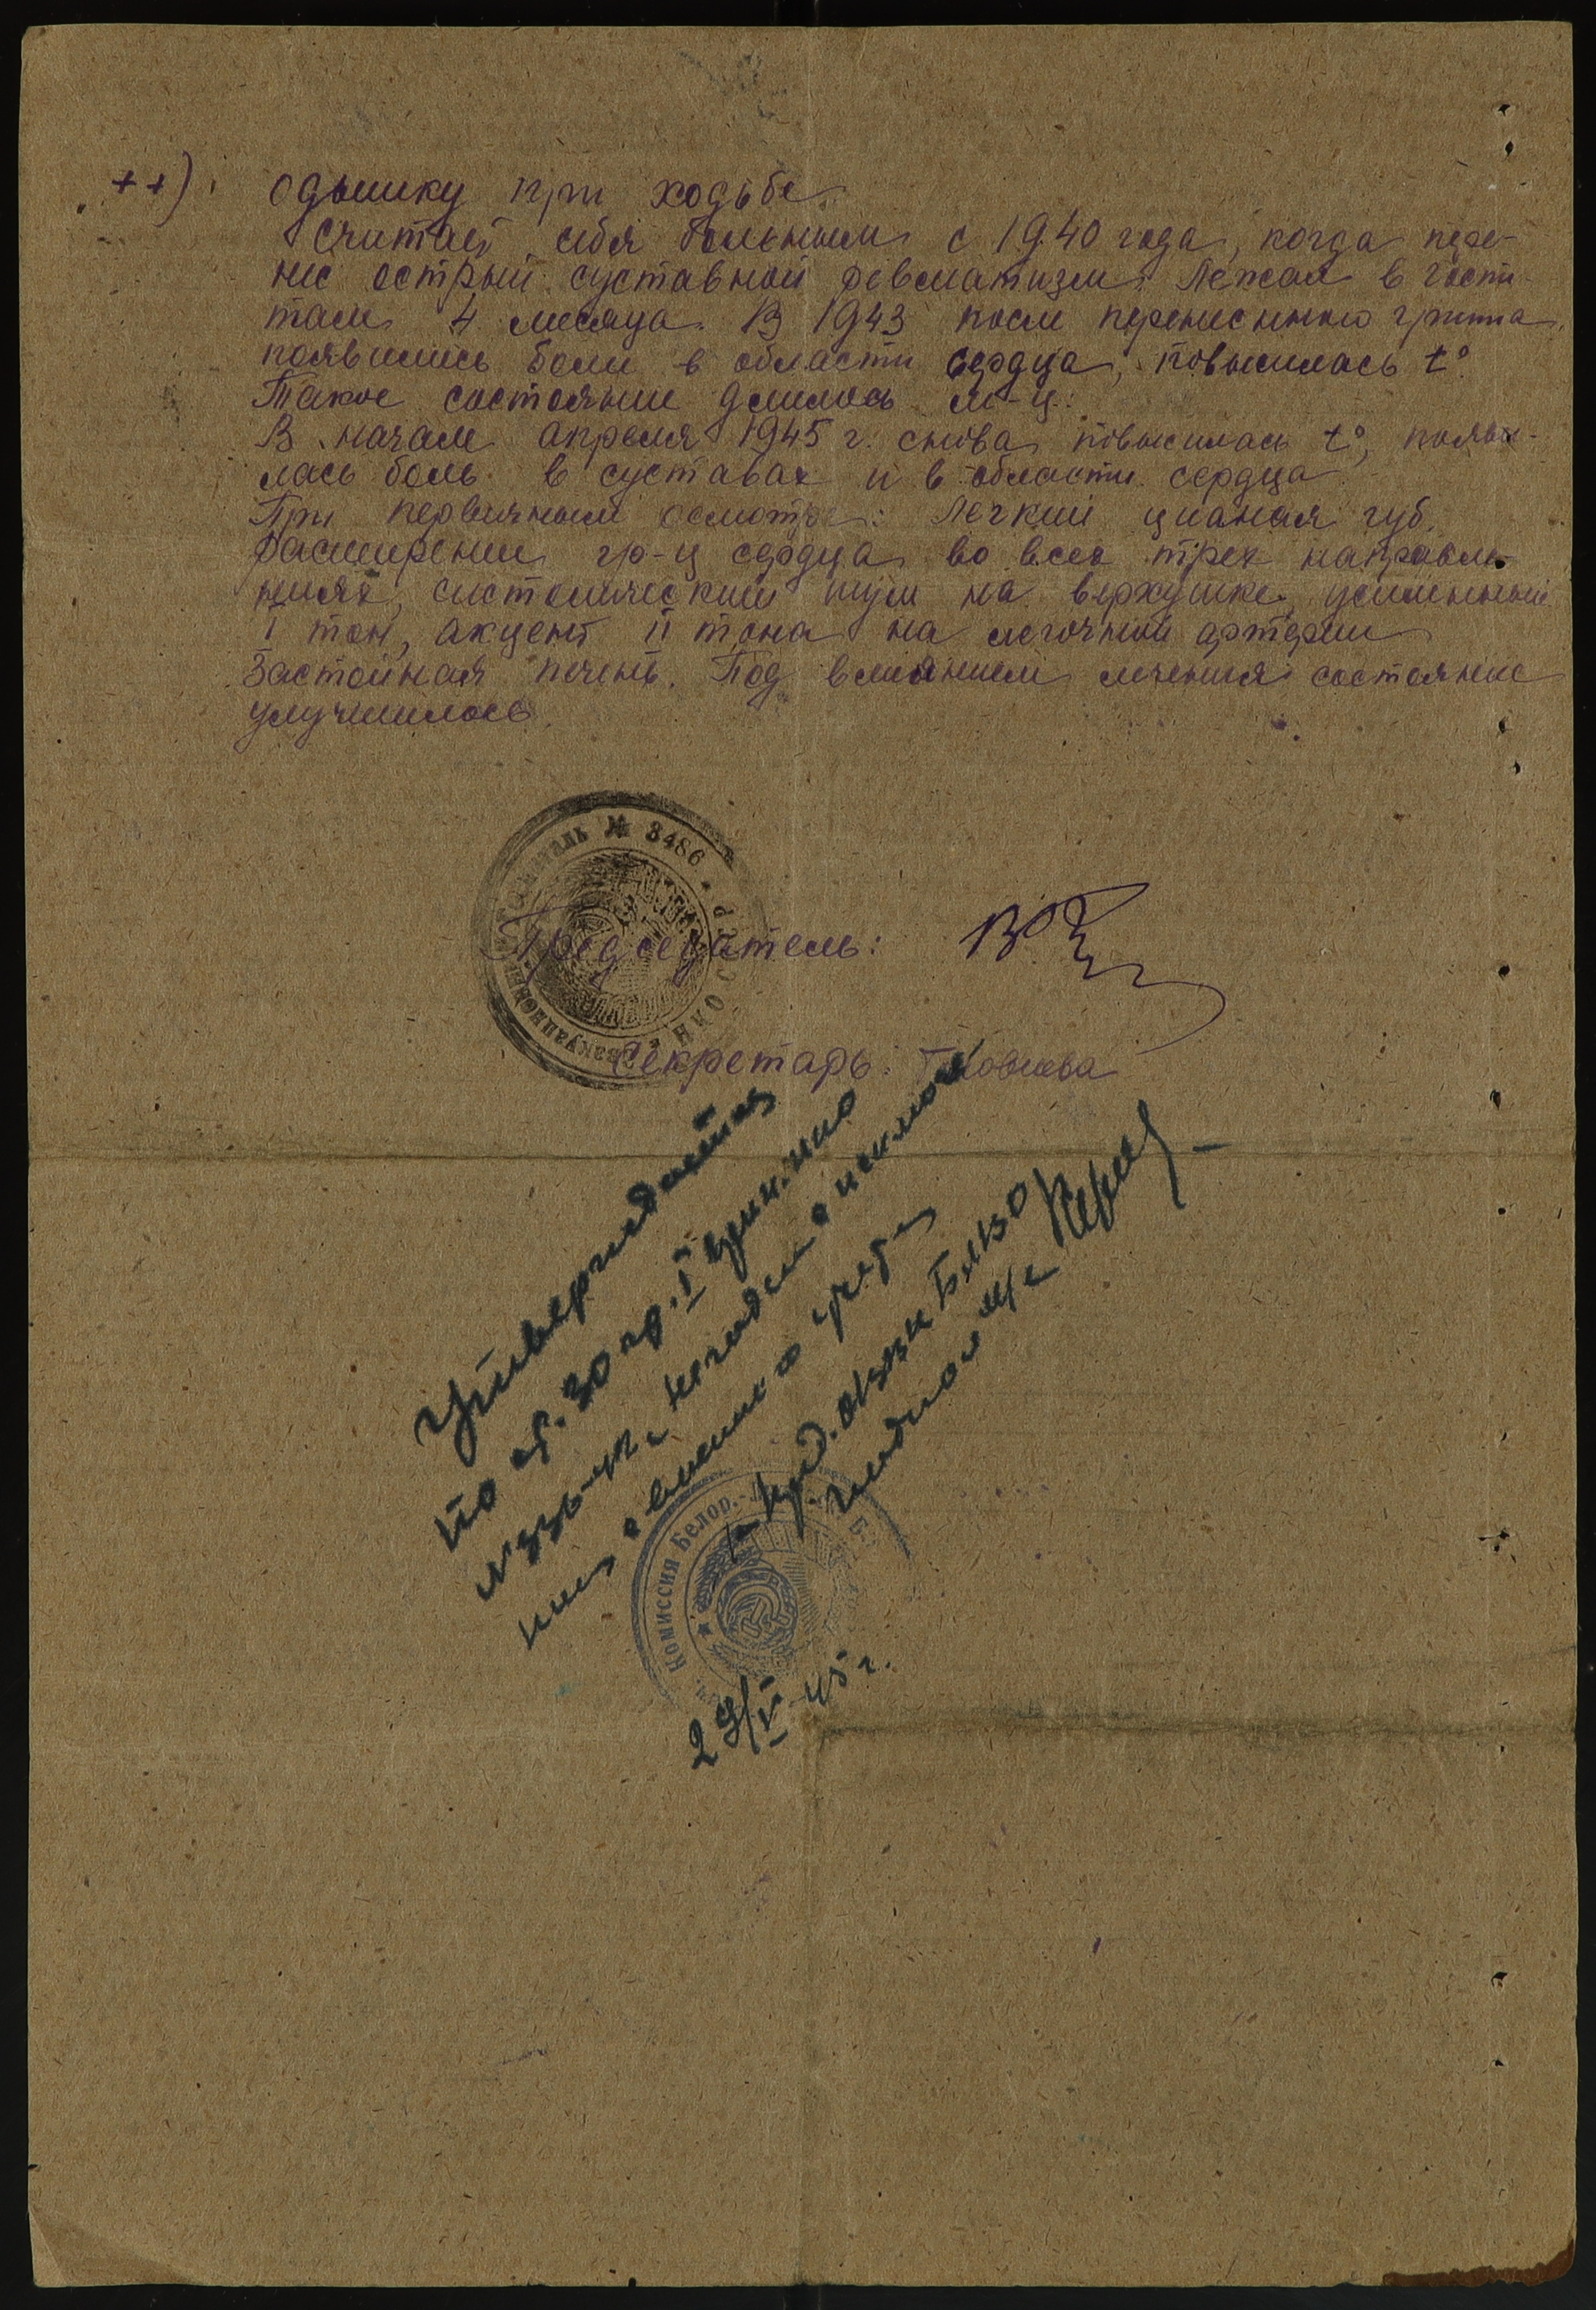 ++) одышку при ходьбе.
Считает себя больным с 1940 года, когда пере-
нес острый суставной ревматизм. Лежал в госпи-
тале 4 месяца. В 1943 после перенесенного гриппа
появились боли в области сердца, повысилась t°.
Такое состояние длилось м-ц.
В начале апреля 1945 г. снова повысилась t°, появи-
лась боль в суставах и в области сердца
При первичном осмотре: Легкий цианоз губ.
Расширение гр-ц сердца во всех трех направле-
ниях, систолический шум на верхушке, усиленный
I тон, акцент II тона на легочной артерии
Застойная печень. Под влиянием лечения состояние
улучшилось.
Эвакуационный госпиталь № 3486 * НКО СССР
Председатель:
Секретарь:
Утверждается
по ст. 30 гр. I
негоден с исключе-
нием с учета
Комиссия Белор.-
45 г.